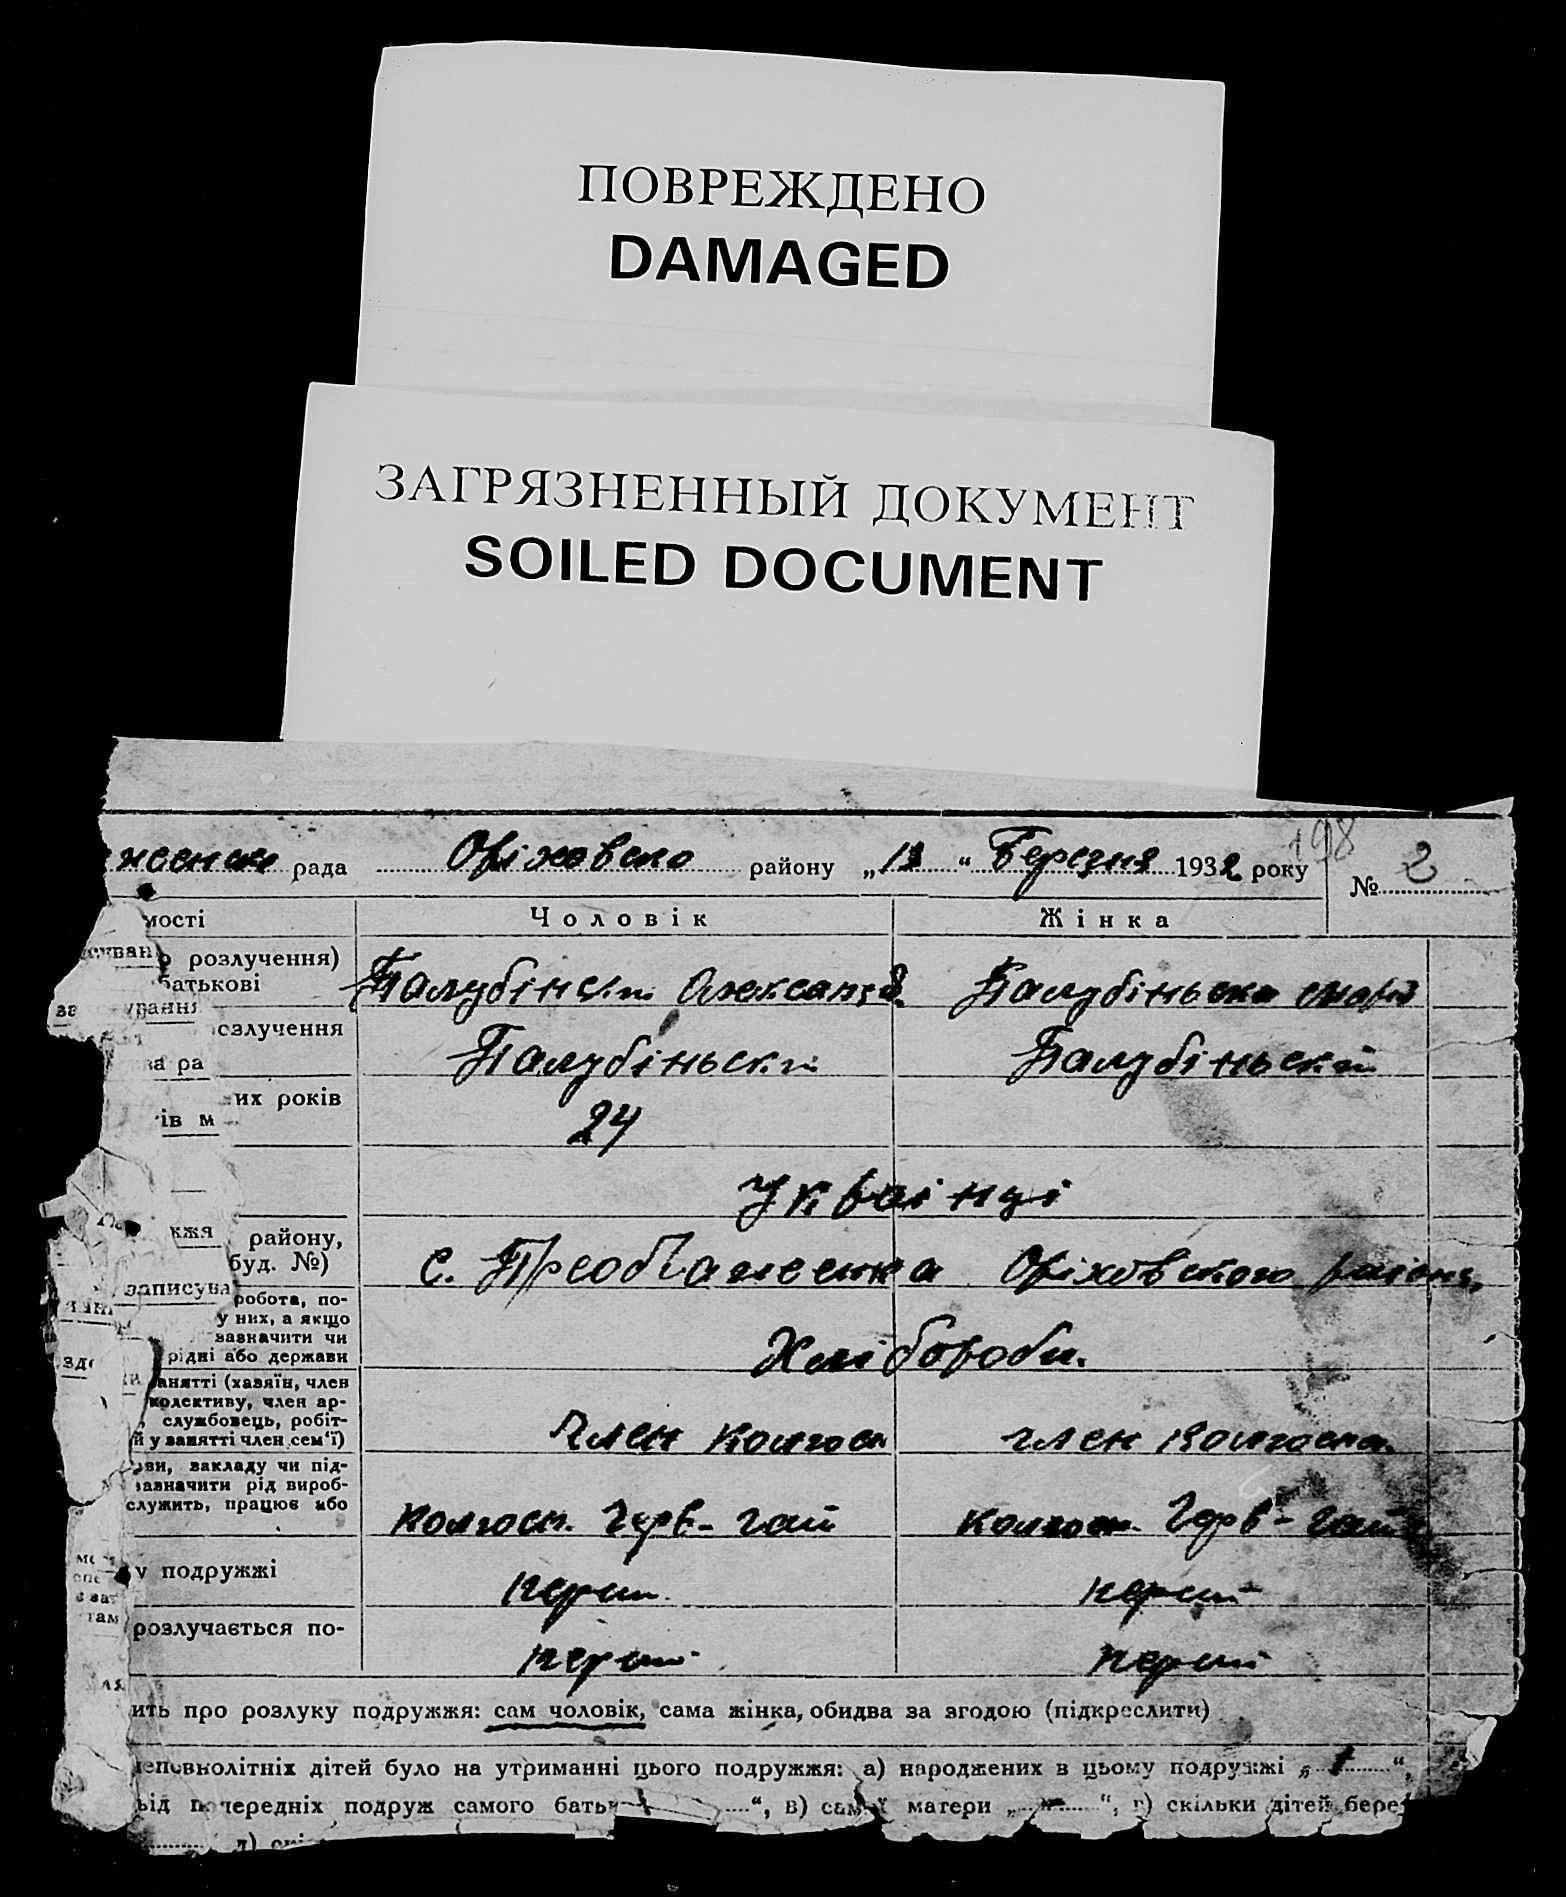 ПОВРЕЖДЕНО
DAMAGED
ЗАГРЯЗНЕННЫЙ ДОКУМЕНТ
SOILED DOCUMENT
рада Оріховсько району „ “ Березня 1932 року
198
№ 2
мості Чоловік Жінка
розлучення)
батькові
Палубінський Олександ. Палубіньська
озлучення
за ра
Палубіньский Палубіньский
их років
ів м
24
Українці
кжя району,
буд. №)
с. Преображенка Оріховського району,
записува
робота, по-
у них, а якщо
зазначити чи
рідні або держави
Хлібороби.
анятті (хазяїн, член
колективу, член ар-
, службовець, робіт-
й у занятті член сем'ї)
Член колгосп член колгоспа.
ови, закладу чи під-
зазначити рід вироб-
служить, працює або
колгосп. Черв-гай колгосп. Черв-гай
у подружжі
перший перший
розлучається по-
перший перший
ить про розлуку подружжя: сам чоловік, сама жінка, обидва за згодою (підкреслити)
неповнолітніх дітей було на утриманні цього подружжя: а) народжених в цьому подружжі „ “,
від попередніх подруж самого бать “, в) самої матери „ “, г) скільки дітей бере